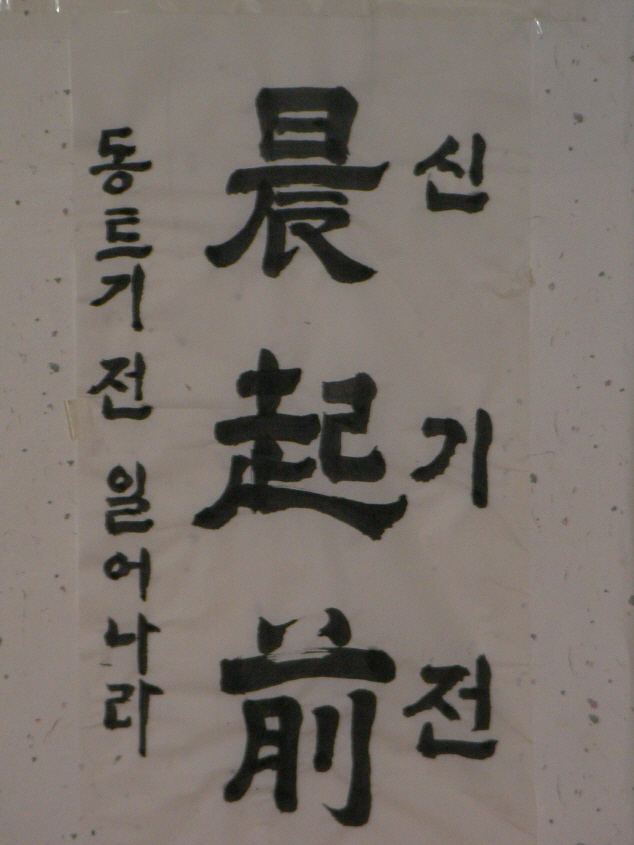 신기전
晨起前
동트기 전 일어나라